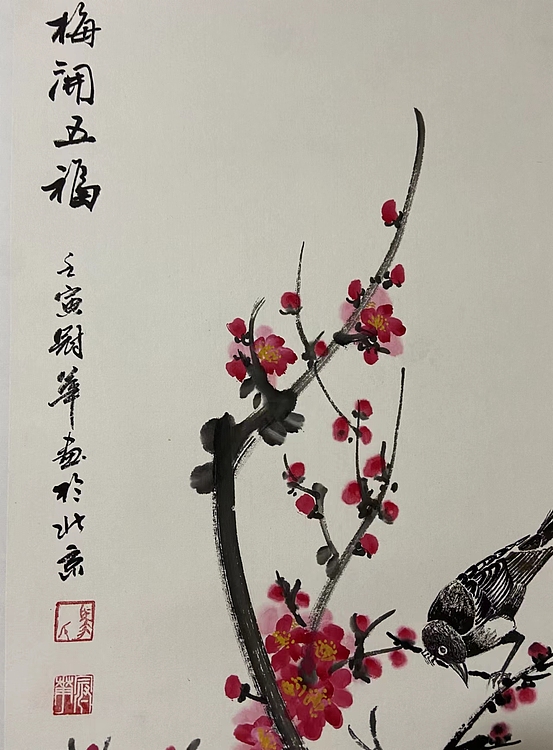 梅開五福
壬寅冠華画於北京